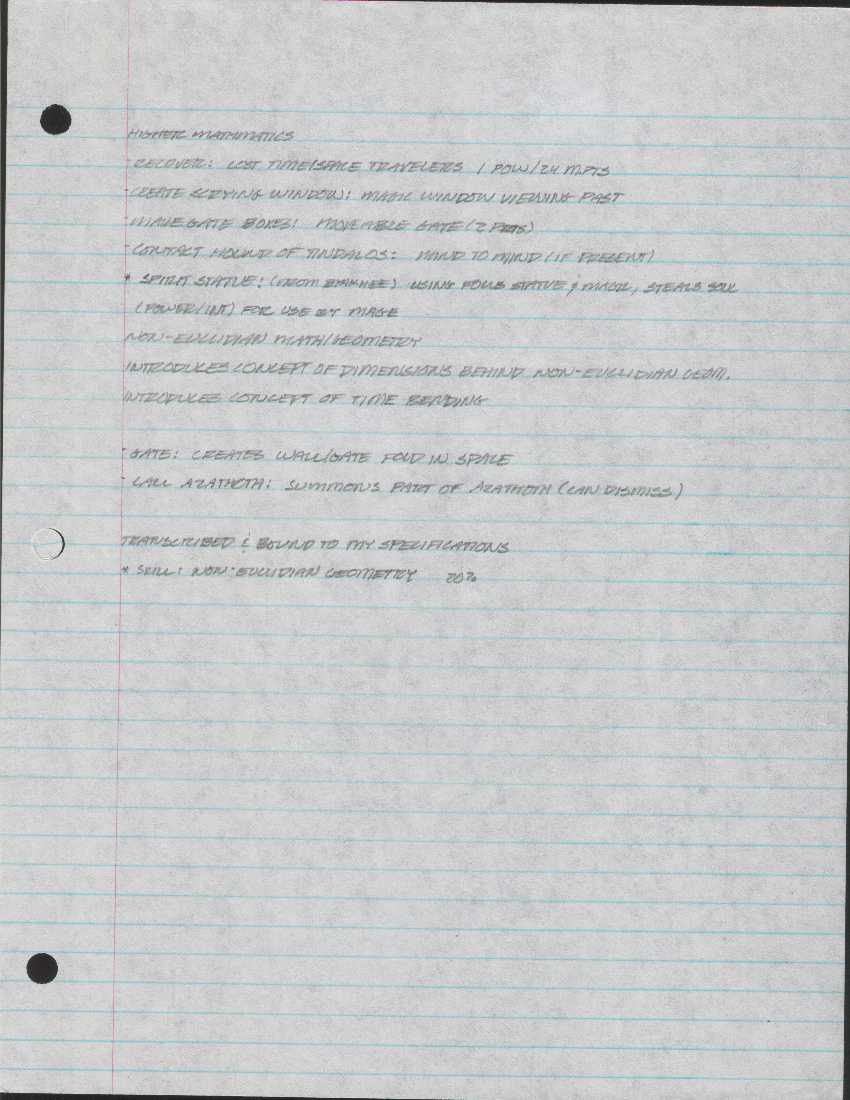 HIGHER MATHMATICS
- RECOVER: LOST TIME/SPACE TRAVELERS 1 POW/24 M.PTS
- CREATE SCRYING WINDOW: MAGIC WINDOW VIEWING PAST
- GATE BOXES: MOVEABLE GATE (2 PARTS)
- CONTACT HOUND OF TINDALOS: MIND TO MIND (IF PRESENT)
* SPIRIT STATUE: (FROM BYAKHEE) USING FOCUS STATUE & MAGIC, STEALS SOUL
(POWER/INT) FOR USE BY MAGE
NON-EUCLIDIAN MATH/GEOMETRY
INTRODUCES CONCEPT OF DIMENSIONS BEHIND NON-EUCLIDIAN GEOM.
INTRODUCES CONCEPT OF TIME BENDING
- GATE: CREATES WALL/GATE FOLD IN SPACE
- CALL AZATHOTH: SUMMONS PART OF AZATHOTH (CAN DISMISS)
TRANSCRIBED & BOUND TO MY SPECIFICATIONS
* SKILL: NON-EUCLIDIAN GEOMETRY 20%